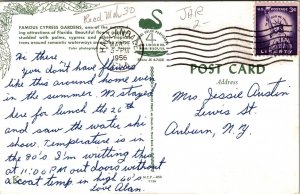 FAMOUS CYPRESS GARDENS, one of the
ing attractions of Florida. Beautiful
studded with palms, cypress and
trees around romantic waterways
Recd Mch 30
JAR
2
1956
3¢
LIBERTY
POST CARD
Address
Hi there
You don't have flowers
like this around home even
in the summer. We stayed
here for lunch the 26th
and saw the water ski
show. Temperature is in
the 80's & I'm writting this
at 11:00 P.M. out doors without
a coat temp in high 60's
Love Alan.
Mrs Jessie Austin
Lewis St.
Auburn, N.Y.